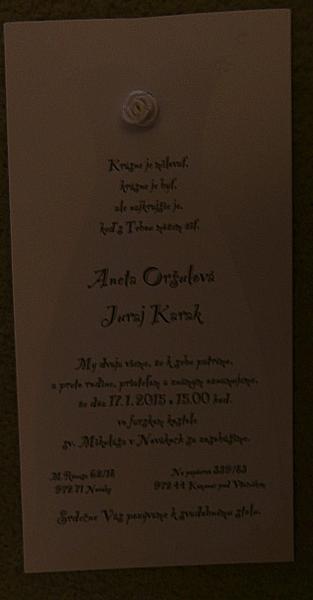 Krásne je milovať,
krásne je byť,
ale najkrajšie je,
keď s Tebou môžem žiť.
Aneta Oršulová
Juraj Karak
My dvaja vieme, že k sebe patríme,
a preto rodine, priateľom a známym oznamujeme,
že dňa 17.1.2015 o 15.00 hod.
vo farskom kostole
sv. Mikuláša v Novákoch sa zosobášime.
M. Rázusa 62/18
972 71 Nováky
Na 339/83
972 44 Kamenec pod Vtáčnikom
Srdečne Vás pozývame k svadobnému stolu.